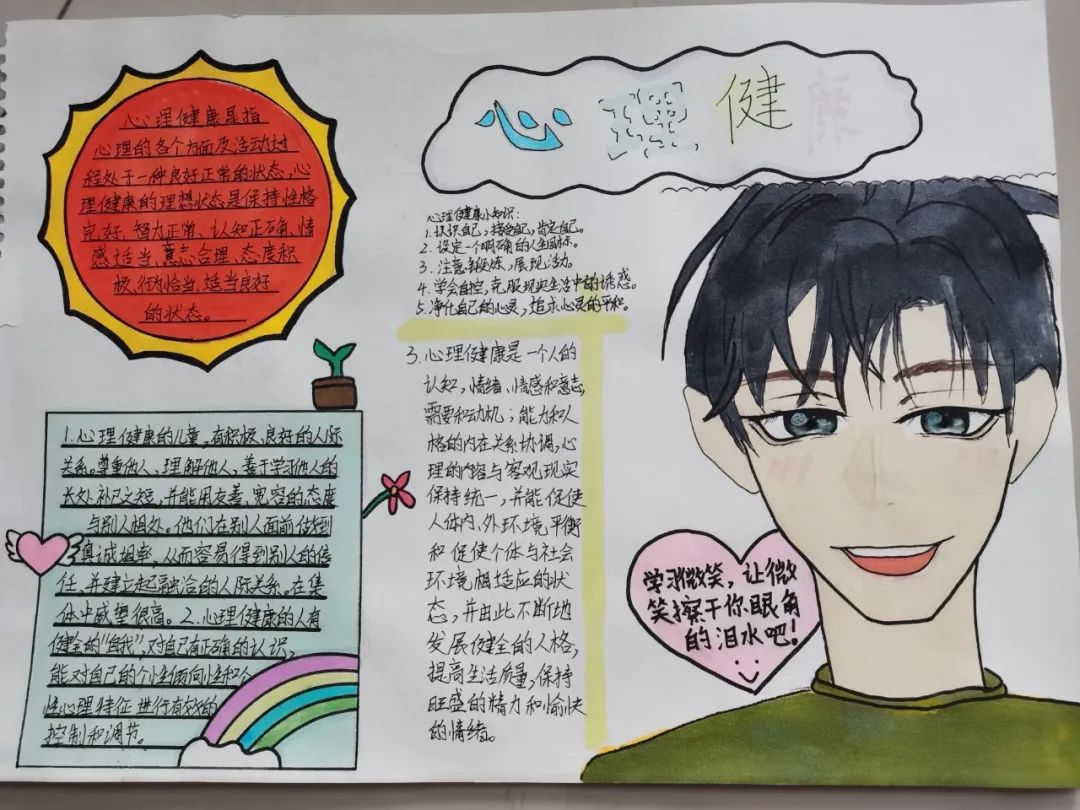 心理健康
心理健康是指
心理的各个方面及活动过
程处于一种良好正常的状态,心
理健康的理想状态是保持性格
完好、智力正常、认知正确、情
感适当、意志合理、态度积
极、行为恰当、适当良好
的状态。
心理健康小知识:
1.认识自己,接受自己,肯定自己。
2.设定一个明确的人生目标。
3.注意锻炼,展现活力。
4.学会自控,克服现实生活中的诱惑。
5.净化自己的心灵,追求心灵的平积。
1.心理健康的儿童,有积极、良好的人际
关系。尊重他人,理解他人,善于学习他人的
长处补己之短,并能用友善、宽容的态度
与别人相处。他们在别人面前能做到
真诚坦率,从而容易得到别人的信
任,并建立起融洽的人际关系。在集
体中威望很高。2.心理健康的人有
健全的“自我”,对自己有正确的认识,
能对自己的个性倾向性和个
性心理特征进行有效的
控制和调节。
3.心理健康是一个人的
认知,情绪、情感和意志,
需要和动机;能力和人
格的内在关系协调,心
理的内容与客观现实
保持统一,并能促使
人体内、外环境平衡
和促使个体与社会
环境相适应的状
态,并由此不断地
发展健全的人格,
提高生活质量,保持
旺盛的精力和愉快
的情绪。
学习微笑,让微
笑擦干你眼角
的泪水吧!